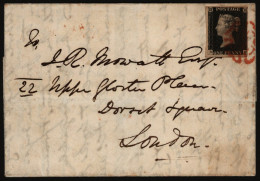 POSTAGE
To
J. R. Mowatt Esq.
22 Upper Gloster Place
Dorset Square
London.